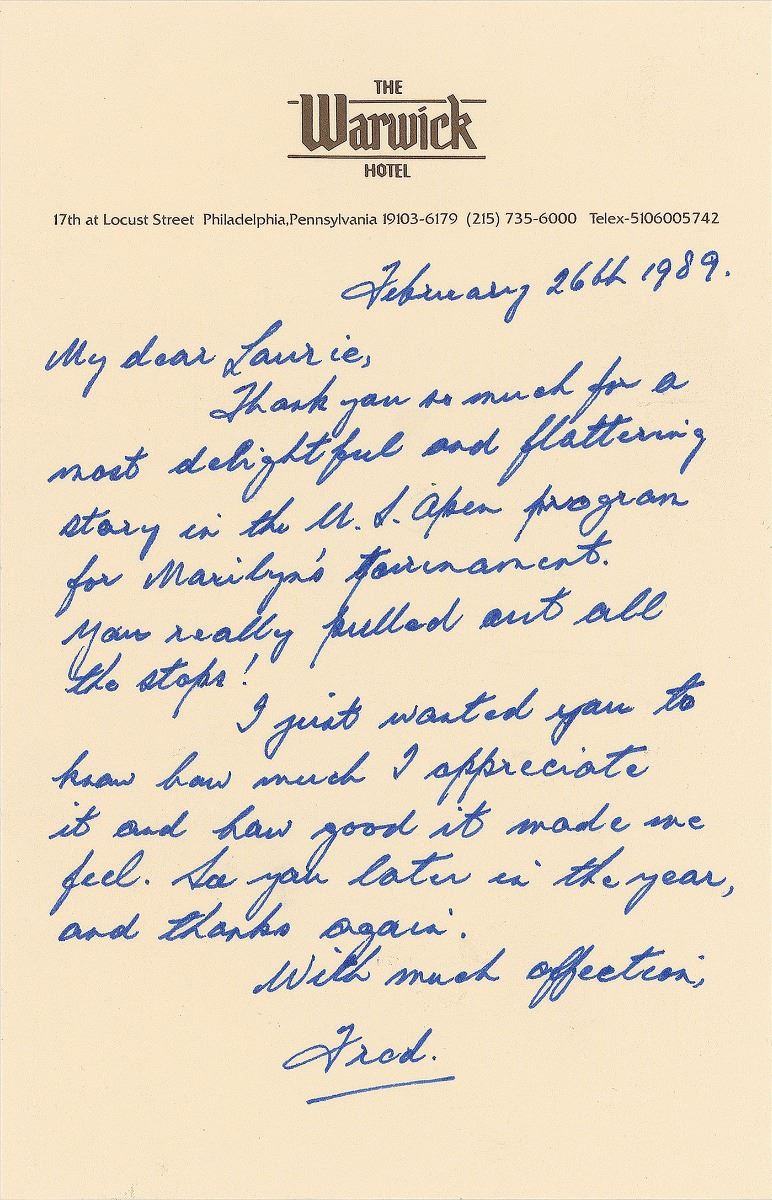 THE
Warwick
HOTEL
17th at Locust Street Philadelphia,Pennsylvania 19103-6179 (215) 735-6000 Telex-5106005742
February 26th 1989.
My dear Laurie,
Thank you so much for a
most delightful and flattering
story in the U. S. Open program
for Marilyn's tournament.
You really pulled out all
the stops!
I just wanted you to
know how much I appreciate
it and how good it made me
feel. See you later in the year,
and thanks again.
With much affection,
Fred.